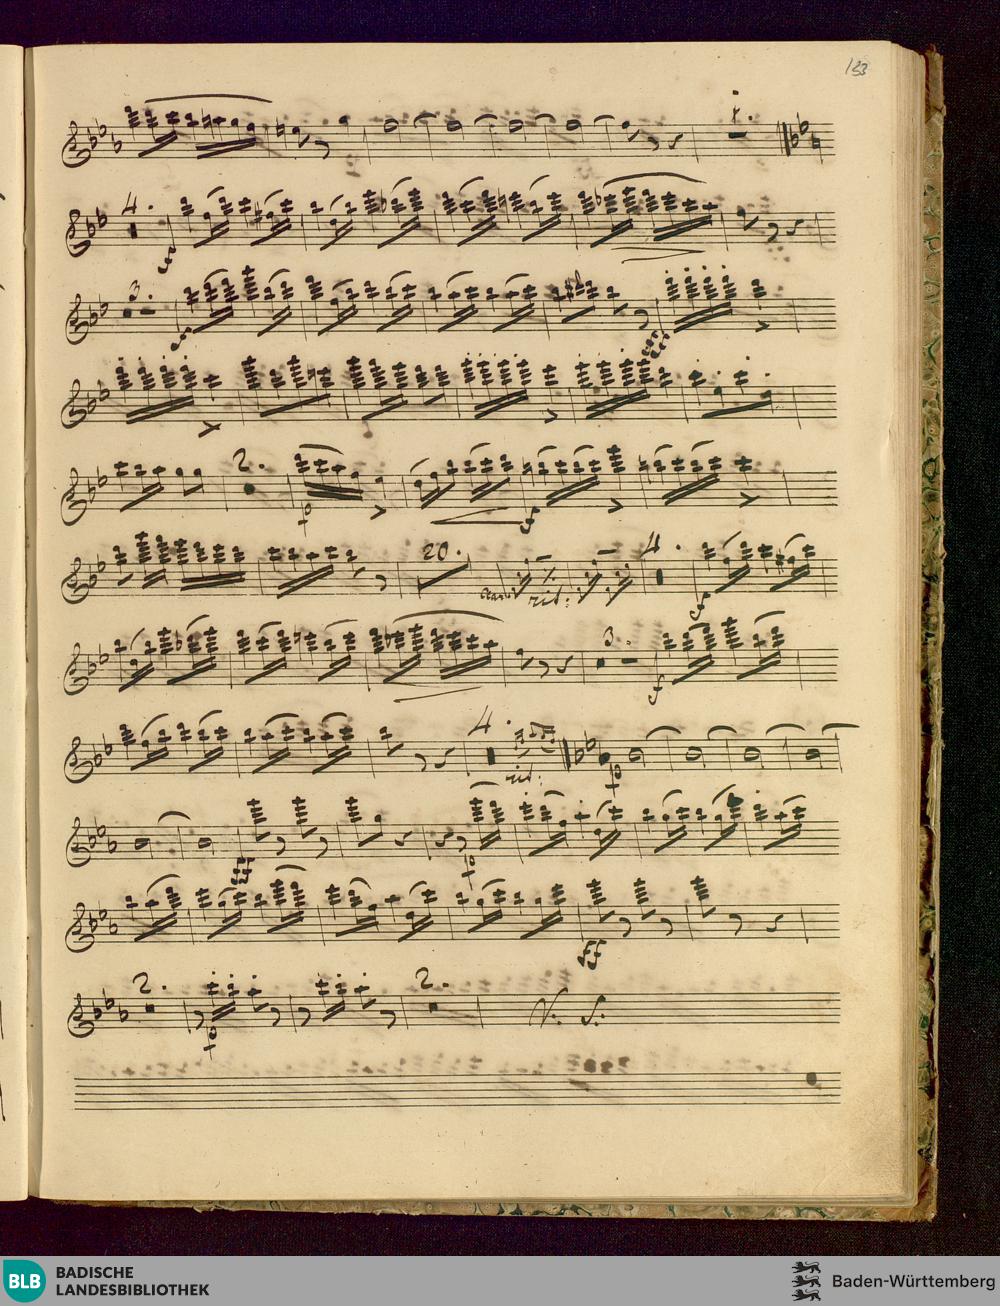 133
1.
4.
f
3.
2.
f
20.
Clar:
rit:
4.
f
3.
f
4.
rit:
ff
2.
2.
V: S:
BLB BADISCHE
LANDESBIBLIOTHEK
Baden-Württemberg